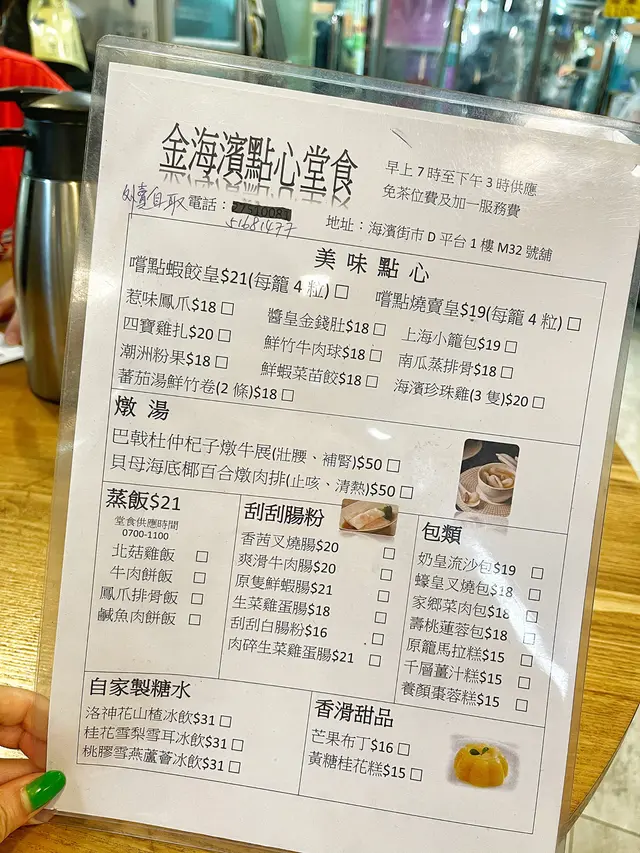 金海濱點心堂食
早上7時至下午3時供應
免茶位費及加一服務費
外賣自取電話：
51681477
地址：海濱街市D平台1樓M32號舖
美味點心
嚐點蝦餃皇$21(每籠4粒)□ 嚐點燒賣皇$19(每籠4粒)□
惹味鳳爪$18□ 醬皇金錢肚$18□ 上海小籠包$19□
四寶雞扎$20□ 鮮竹牛肉球$18□ 南瓜蒸排骨$18□
潮洲粉果$18□ 鮮蝦菜苗餃$18□ 海濱珍珠雞(3隻)$20□
蕃茄湯鮮竹卷(2條)$18□
燉湯
巴戟杜仲杞子燉牛展(壯腰、補腎)$50□
貝母海底椰百合燉肉排(止咳、清熱)$50□
蒸飯$21
堂食供應時間
0700-1100
北菇雞飯 □
牛肉餅飯 □
鳳爪排骨飯 □
鹹魚肉餅飯 □
刮刮腸粉
香茜叉燒腸$20 □
爽滑牛肉腸$20 □
原隻鮮蝦腸$21 □
生菜雞蛋腸$18 □
刮刮白腸粉$16 □
肉碎生菜雞蛋腸$21 □
包類
奶皇流沙包$19 □
蠔皇叉燒包$18 □
家鄉菜肉包$18 □
壽桃蓮蓉包$18 □
原籠馬拉糕$15 □
千層薑汁糕$15 □
養顏棗蓉糕$15 □
自家製糖水
洛神花山楂冰飲$31□
桂花雪梨雪耳冰飲$31□
桃膠雪燕蘆薈冰飲$31□
香滑甜品
芒果布丁$16□
黃糖桂花糕$15□